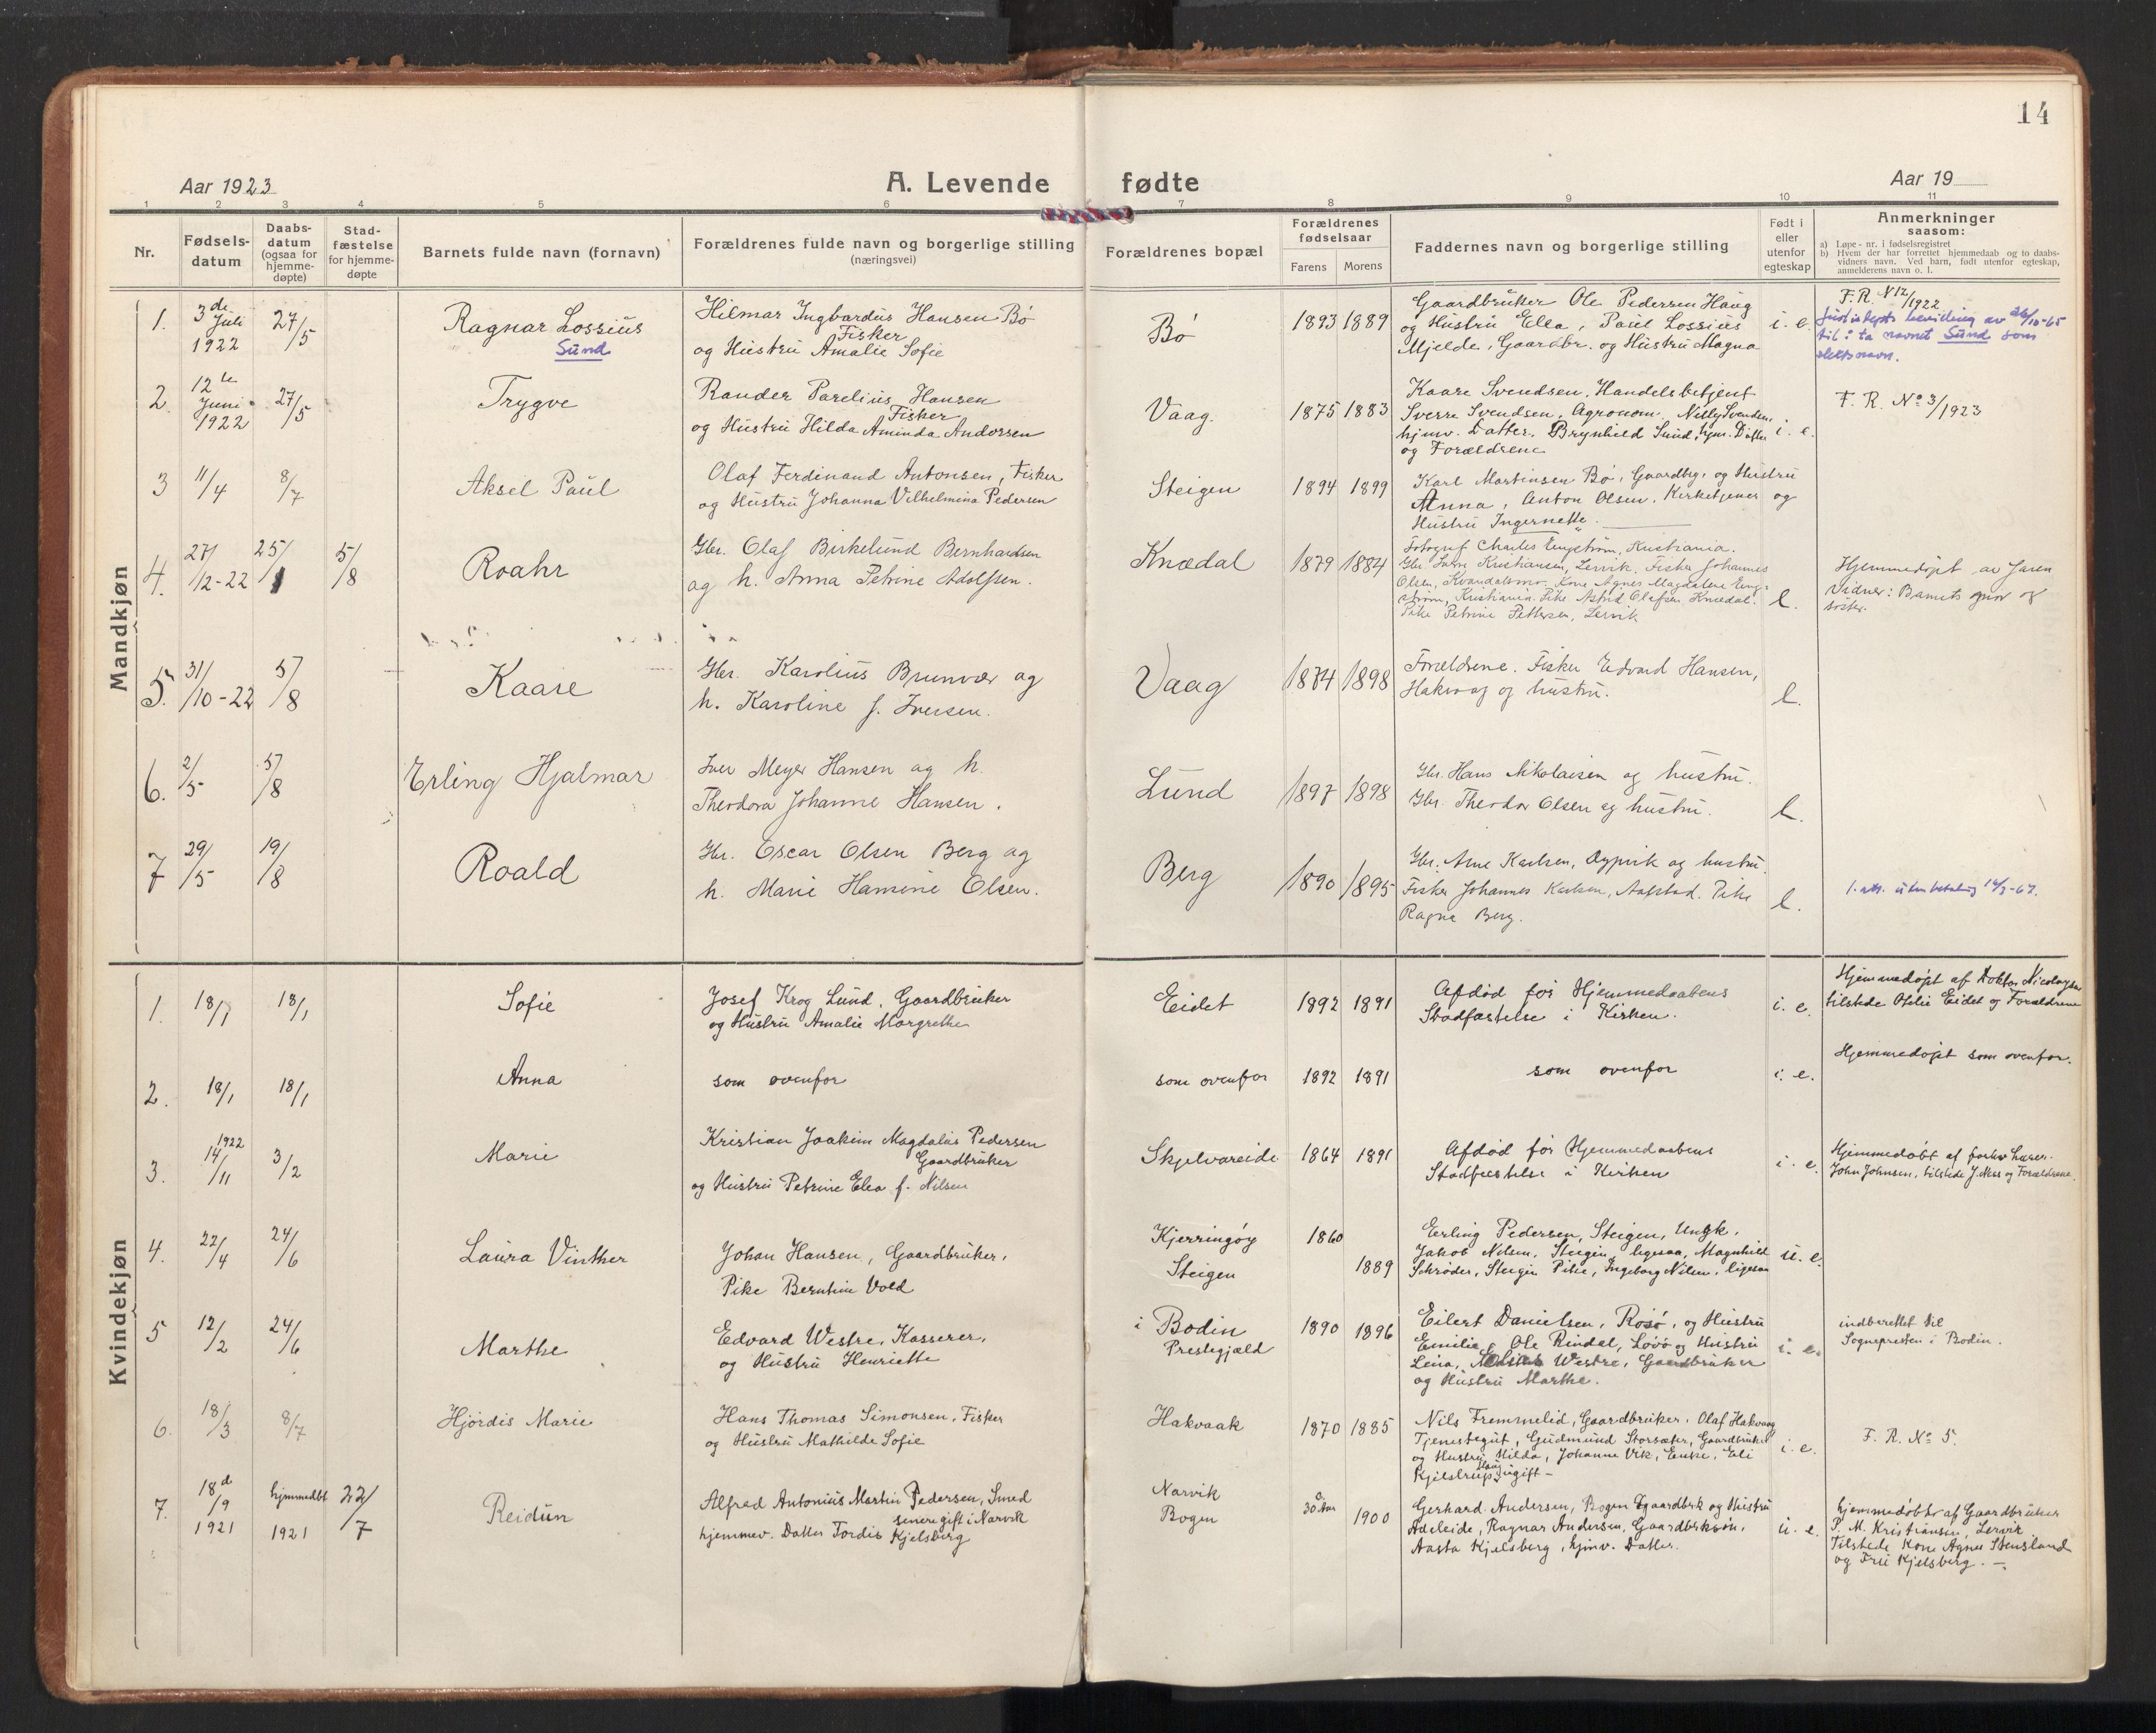 14
Aar 1923
A. Levende fødte
Aar 19
1 2 3 4 5 6 7 8 9 10 11
Nr.
Fødsels-
datum
Daabs-
datum
(ogsaa for
hjemme-
døpte)
Stad-
fæstelse
for hjemme-
døpte
Barnets fulde navn (fornavn)
Forældrenes fulde navn og borgerlige stilling
(næringsvei)
Forældrenes bopæl
Forældrenes
fødselsaar
Farens Morens
Faddernes navn og borgerlige stilling
Født i
eller
utenfor
egteskap
Anmerkninger
saasom:
a) Løpe-nr. i fødselsregistret
b) Hvem der har forrettet hjemmedaab og to daabs-
vidners navn. Ved barn, født utenfor egteskap,
anmelderens navn o. l.
Mandkjøn
1. 3de Juli 1922 27/5
Ragnar Lossius
Sund
Hilmar Ingvardus Hansen Bö
Fisker
og Hustru Amalie Sofie
Bö
1893 1889
Gaardbruker Ole Pedersen Haug
og Hustru Ella, Paul Lossius
Mjelde, Gaardbr. og Hustru Magna
i. e.
F. R. N 12/1922
av 26/10-65
til å ta navnet Sund som
slektsnavn.
2. 12te Juni 1922 27/5
Trygve
Rander Parelius Hansen
Fisker
og Hustru Hilda Aminda Andorsen
Vaag.
1875 1883
Kaare Svendsen, Handelsbetjent
Sverre Svendsen, Agronom, Nelly Svendsen,
hjmv. Datter, Brynhild Sund, hjm. Datter
og Forældrene
i. e.
F. R. No 3/1923
3 11/4 8/7
Aksel Paul
Olaf Ferdinand Antonsen, Fisker
og Hustru Johanna Vilhelmina Pedersen
Steigen
1894 1899
Karl Martinsen Bö, Gaardbr. og Hustru
Anna, Anton Olsen, Kirketjener og
Hustru Ingernette.
4. 27/12-22 25/1 5/8
Roahr
Gbr. Olaf Birkelund Bernhardsen
og h. Anna Petrine Adolfsen.
Knædal
1879 1884
Fotograf Charles Engström, Kristiania.
Gbr. Kristiansen, Lervik. Fisker Johannes
Olsen, Kone Agnes Magdalene Eng-
ström, Kristiania. Pike Astrid Olafsen Knædal.
Pike Petrine Pettersen, Lervik
e.
Hjemmedöpt av faren
Vidner: Barnets mor og
söster.
5. 31/10-22 5/8
Kaare
Gbr. Karolius Brunvær og
h. Karoline f. Iversen.
Vaag
1874 1898
Forældrene. Fisker Edvard Hansen,
Hakvaag og hustru.
e.
6. 2/5 5/8
Erling Hjalmar
Iver Meyer Hansen og h.
Theodora Johanne Hansen.
Lund
1897 1898
Gbr. Hans Nikolaisen og hustru.
Gbr. Theodor Olsen og hustru.
e.
7 29/5 19/8
Roald
Gbr. Oscar Olsen Berg og
h. Marie Hansine Olsen.
Berg
1890 1895
Gbr. Arne Karlsen, Dypvik og hustru.
Fisker Johannes Karlsen, Aalstad. Pike
Ragna Berg.
e.
1. att. uten betaling
Kvindekjøn
1. 18/1 18/1
Sofie
Josef Krog Lund, Gaardbruker
og Hustru Amalie Margrethe
Eidet
1892 1891
Afdöd för Hjemmedaabens
Stadfæstelse i Kirken.
i. e.
Hjemmedöpt af Doktor Nicolaysen
tilstede Otelie Eidet og Forældrene
2. 18/1 18/1
Anna
som ovenfor
som ovenfor
1892 1891
som ovenfor
i. e.
Hjemmedöpt som ovenfor.
3. 14/11 1922 3/2
Marie
Kristian Joakim Magdalus Pedersen
Gaardbruker
og Hustru Petrine Elea f. Nilsen
Skjelvareide
1864 1891
Afdöd för Hjemmedaabens
Stadfæstelse i Kirken
i. e.
Hjemmedöbt af forhv Lærer
John Johnsen, tilstede J. Ness og Forældrene.
4. 22/4 24/6
Laura Vinther
Johan Hansen, Gaardbruker,
Pike Berntine Vold
Kjerringöy
Steigen
1860
1889
Erling Pedersen, Steigen, Ungk.
Jakob Nilsen, Steigen ligesaa, Magnhild
Schröder, Steigen Pike, Ingeborg Nilsen, ligesaa
u. e.
5 12/2 24/6
Marthe
Edvard Westre, Kasserer,
og Hustru Henriette
i Bodin
Prestegjæld
1890 1896
Eilert Danielsen, Rosö, og Hustru
Emilie, Ole Rindal, Lövö og Hustru
Leina, Westre, Gaardbruker
og Hustru Marthe.
i. e.
indberettet til
Sognepresten i Bodin.
6. 18/3 8/7
Hjördis Marie
Hans Thomas Simonsen, Fisker
og Hustru Mathilde Sofie
Hakvaak
1870 1885
Nils Fremmelid, Gaardbruker, Olaf Hakvaag
Tjenestegut, Gudmund Storsæter, Gaardbruker
og Hustru Hilda, Johanna Vik, Enke, Eli
Kjelstrup Haug ugift -
i. e.
F. R. No 5.
7. 18d/9 1921 hjemmedbt 1921 22/7
Reidun
Alfred Antonius Martin Pedersen, Smed
senere gift i Narvik
hjemmev. Datter Tordis Kjelsberg
Narvik
Bogen
30 Aar
1900
Gerhard Andersen, Bogen Gaardbrk og Hustru
Adeleide, Ragnar Andersen, Gaardbrksön,
Aasta Kjelsberg, hjmv. Datter.
u. e.
hjemmedöbt af Gaardbruker
P. M. Kristiansen, Lervik
Tilstede Kone Agnes Stensland
og Fru Kjelsberg. -